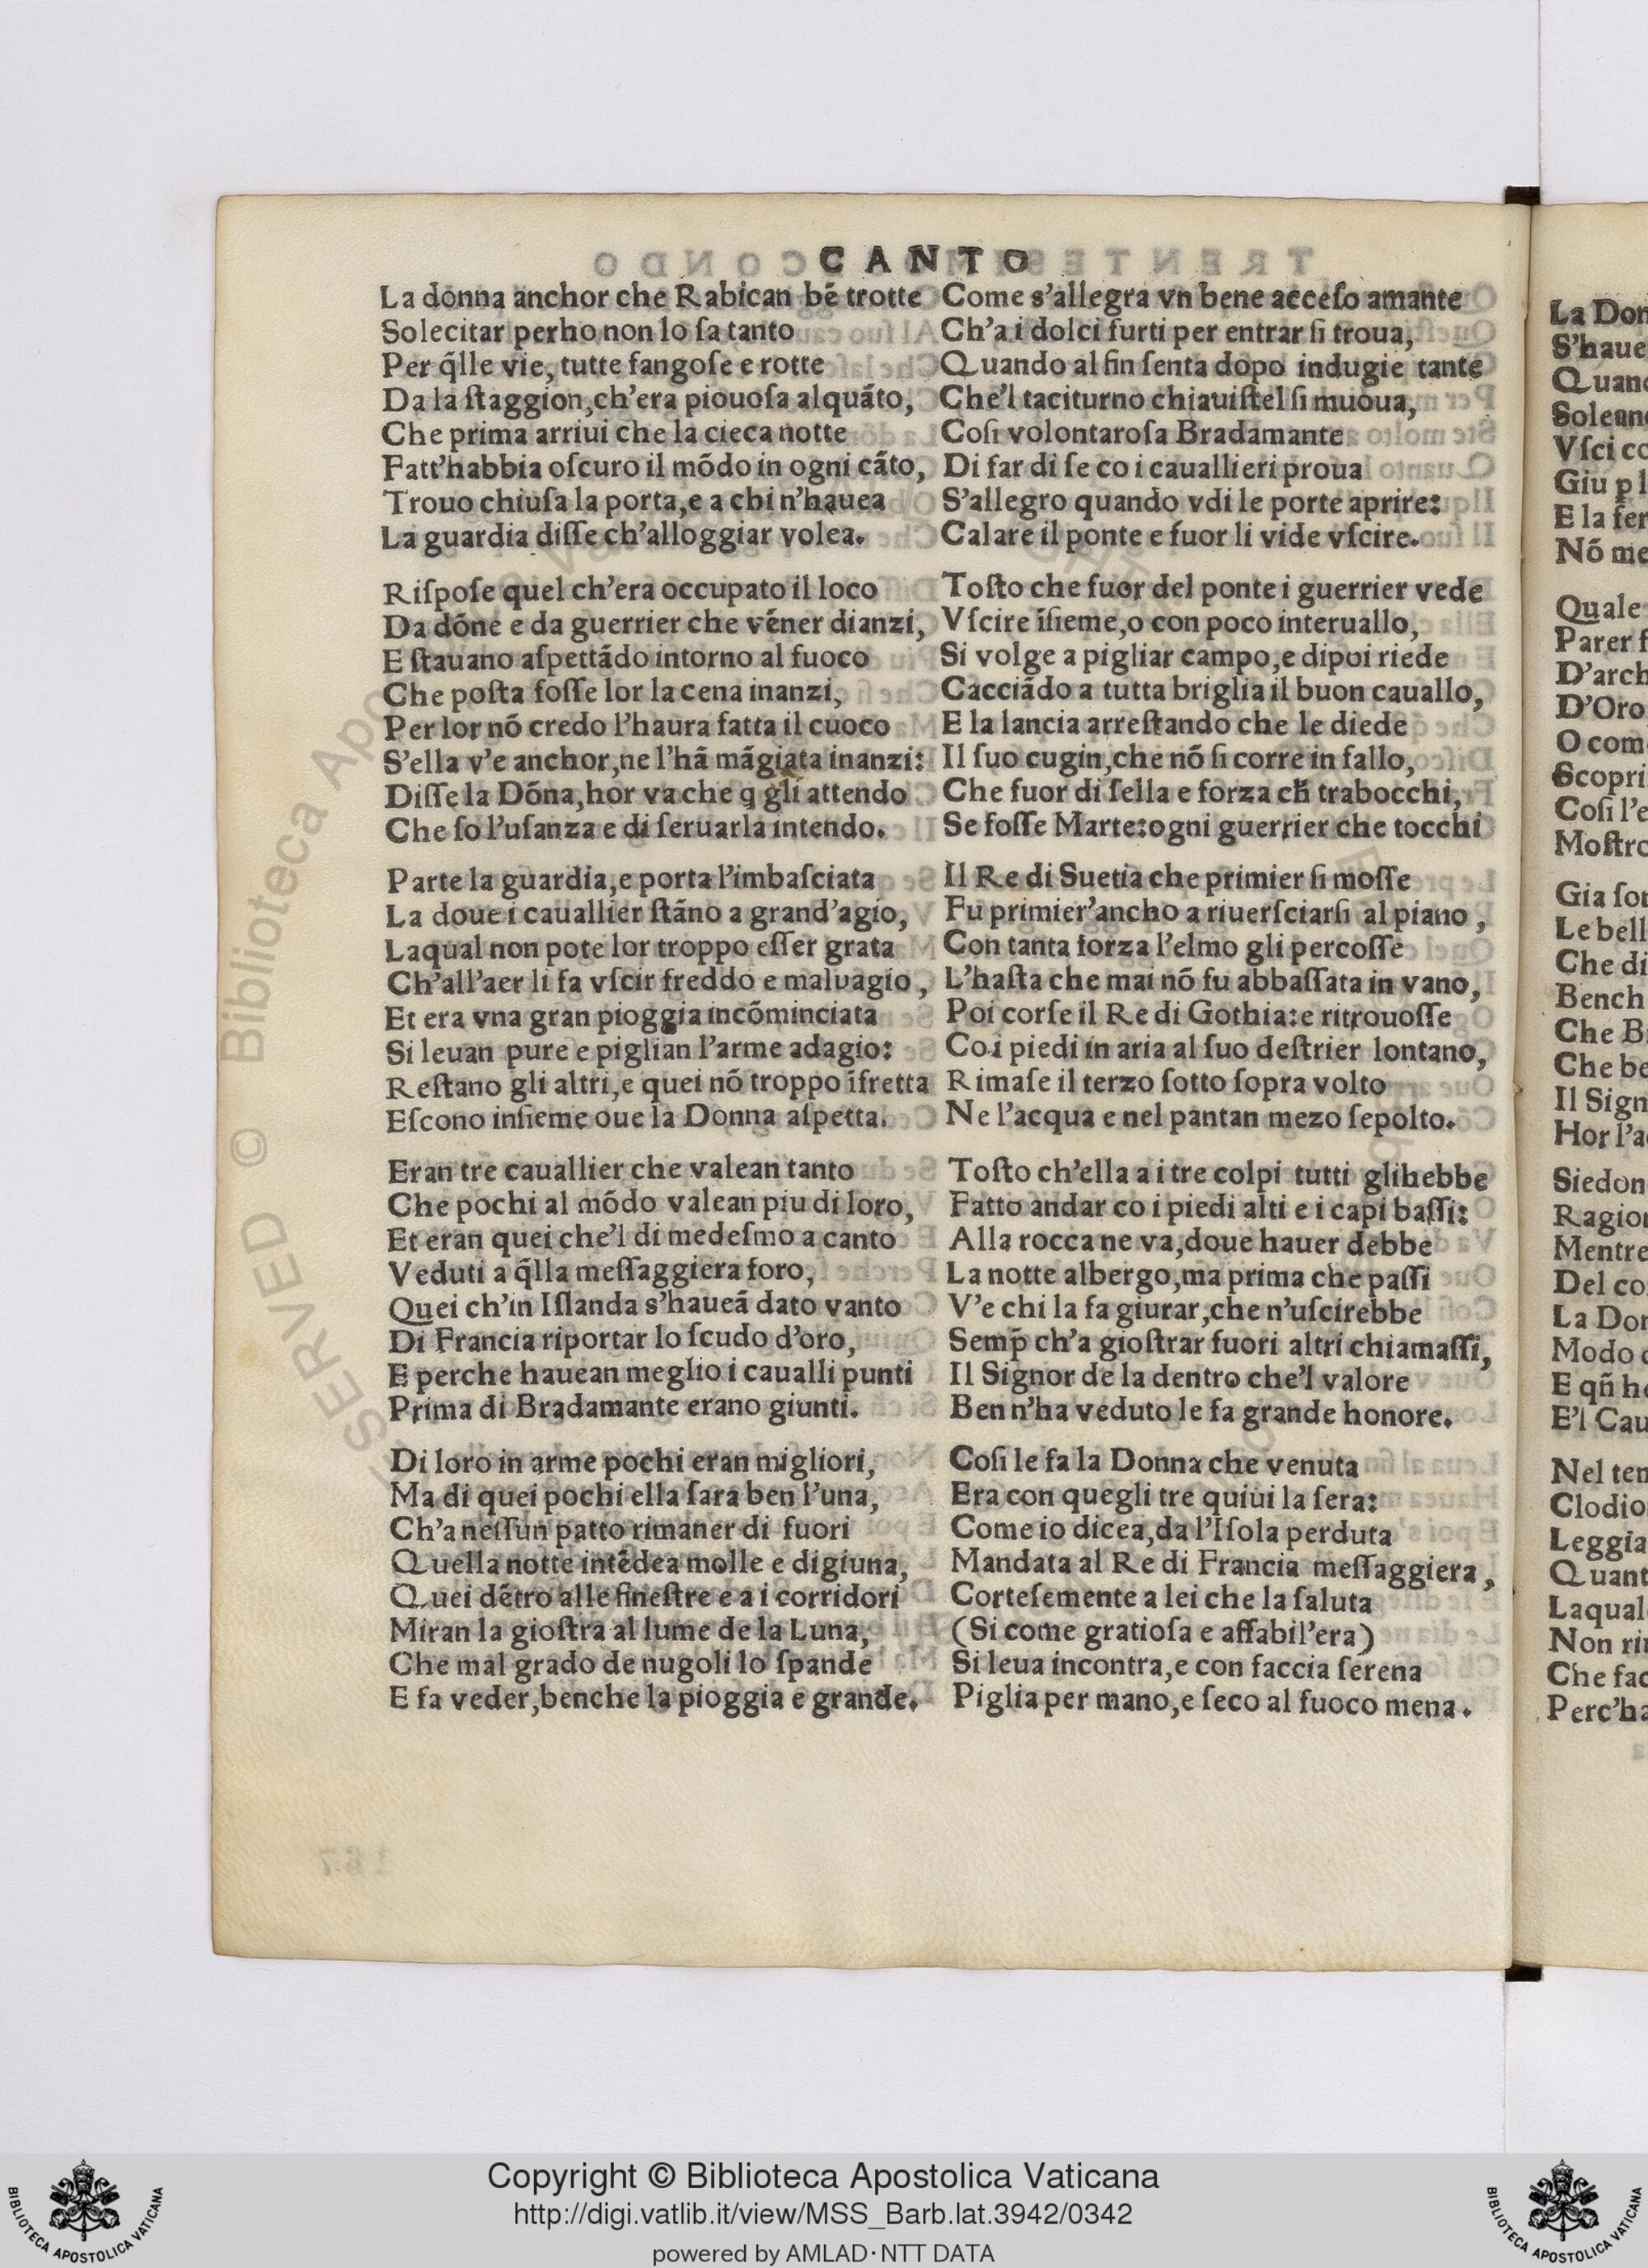 CANTO
La donna anchor che Rabican bē trotte
Solecitar perho non lo fa tanto
Per q̄lle vie, tutte fangoſe e rotte
Da la ſtaggion,ch'era piouoſa alquāto,
Che prima arriui che la cieca notte
Fatt'habbia oſcuro il mōdo in ogni cāto,
Trouo chiuſa la porta,e a chi n'hauea
La guardia diſſe ch'alloggiar volea.
Riſpoſe quel ch'era occupato il loco
Da dōne e da guerrier che vēner dianzi,
E ſtauano aſpettādo intorno al fuoco
Che poſta foſſe lor la cena inanzi,
Per lor nō credo l'haura fatta il cuoco
S'ella v'e anchor,ne l'hā māgiata inanzi:
Diſſe la Dōna,hor va che q gli attendo
Che ſo l'uſanza e di ſeruarla intendo.
Parte la guardia,e porta l'imbaſciata
La doue i cauallier ſtāno a grand'agio,
Laqual non pote lor troppo eſſer grata
Ch'all'aer li fa vſcir freddo e maluagio,
Et era vna gran pioggia incōminciata
Si leuan pure e piglian l'arme adagio:
Reſtano gli altri,e quei nō troppo īfretta
Eſcono inſieme oue la Donna aſpetta.
Eran tre cauallier che valean tanto
Che pochi al mōdo valean piu di loro,
Et eran quei che'l di medeſmo a canto
Veduti a q̄lla meſſaggiera foro,
Quei ch'in Iſlanda s'haueā dato vanto
Di Francia riportar lo ſcudo d'oro,
E perche hauean meglio i caualli punti
Prima di Bradamante erano giunti.
Di loro in arme pochi eran migliori,
Ma di quei pochi ella ſara ben l'una,
Ch'a neſſun patto rimaner di fuori
Quella notte intēdea molle e digiuna,
Quei dētro alle fineſtre e a i corridori
Miran la gioſtra al lume de la Luna,
Che mal grado de nugoli lo ſpande
E fa veder,benche la pioggia e grande.
Come s'allegra vn bene acceſo amante
Ch'a i dolci furti per entrar ſi troua,
Quando al fin ſenta dopo indugie tante
Che'l taciturno chiauiſtel ſi muoua,
Coſi volontaroſa Bradamante
Di far di ſe co i cauallieri proua
S'allegro quando vdi le porte aprire:
Calare il ponte e fuor li vide vſcire.
Toſto che fuor del ponte i guerrier vede
Vſcire īſieme,o con poco interuallo,
Si volge a pigliar campo,e dipoi riede
Cacciādo a tutta briglia il buon cauallo,
E la lancia arreſtando che le diede
Il ſuo cugin,che nō ſi corre in fallo,
Che fuor di ſella e forza ch̄ trabocchi,
Se foſſe Marte:ogni guerrier che tocchi
Il Re di Suetia che primier ſi moſſe
Fu primier'ancho a riuerſciarſi al piano,
Con tanta forza l'elmo gli percoſſe
L'haſta che mai nō fu abbaſſata in vano,
Poi corſe il Re di Gothia:e ritrouoſſe
Co i piedi in aria al ſuo deſtrier lontano,
Rimaſe il terzo ſotto ſopra volto
Ne l'acqua e nel pantan mezo ſepolto.
Toſto ch'ella a i tre colpi tutti glihebbe
Fatto andar co i piedi alti e i capi baſſi:
Alla rocca ne va,doue hauer debbe
La notte albergo,ma prima che paſſi
V'e chi la fa giurar,che n'uſcirebbe
Semp̄ ch'a gioſtrar fuori altri chiamaſſi,
Il Signor de la dentro che'l valore
Ben n'ha veduto le fa grande honore.
Coſi le fa la Donna che venuta
Era con quegli tre quiui la ſera:
Come io dicea,da l'Iſola perduta
Mandata al Re di Francia meſſaggiera,
Corteſemente a lei che la ſaluta
(Si come gratioſa e affabil'era)
Si leua incontra,e con faccia ſerena
Piglia per mano,e ſeco al fuoco mena.
La Don
S'haue
Quand
Solean
Vſci co
Giu p l
E la fer
Nō me
Quale
Parer f
D'arch
D'Oro
O com
Scopri
Coſi l'e
Moſtro
Gia ſon
Le bell
Che di
Bench
Che B
Che be
Il Sign
Hor l'a
Siedon
Ragion
Mentre
Del co
La Don
Modo
E qn̄ h
E'l Cau
Nel ten
Clodio
Leggia
Quant
Laqual
Non rin
Che fac
Perc'ha
Copyright © Biblioteca Apostolica Vaticana
http://digi.vatlib.it/view/MSS_Barb.lat.3942/0342
powered by AMLAD·NTT DATA
BIBLIOTECA APOSTOLICA VATICANA
BIBLIOTECA APOSTOLICA VATICANA